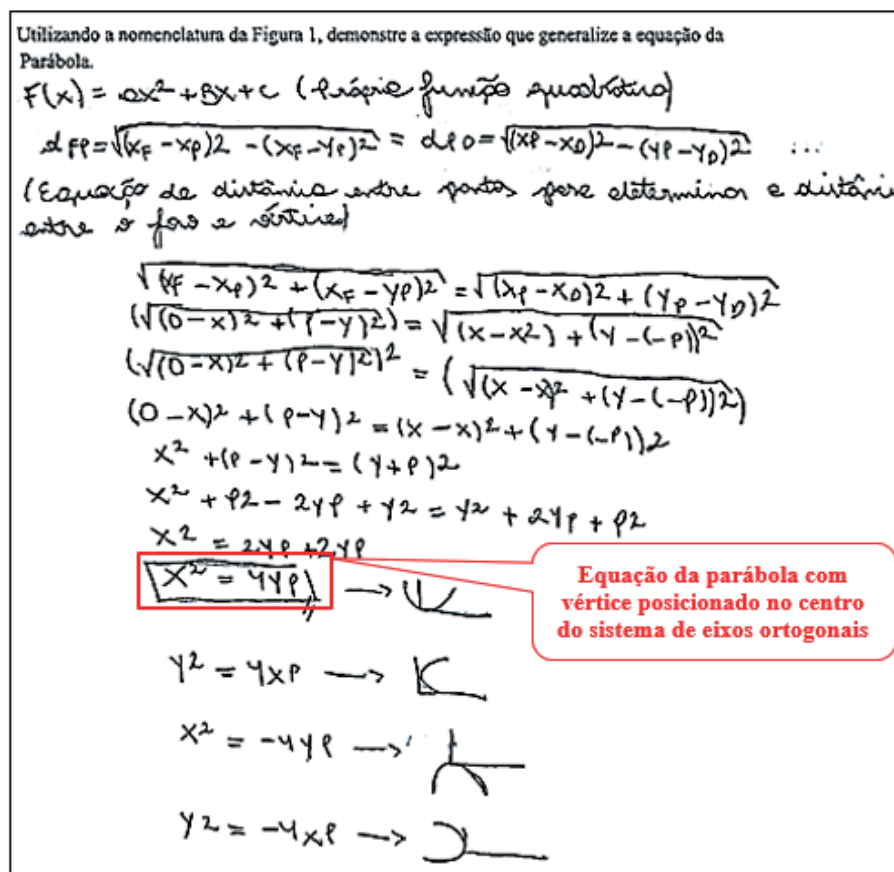 Utilizando a nomenclatura da Figura 1, demonstre a expressão que generalize a equação da
Parábola.
F(x) = ax² + Bx + c (Própria função quadrática)
dFP = √(xF - xP)2 - (xF - yP)2 = dPD = √(xP - xD)2 - (yP - yD)2 ...
(Equação de distância entre pontos para determinar a distância
entre o foco e vértice)
√(xF - xP)2 + (xF - yP)2 = √(xP - xD)2 + (yP - yD)2
(√(0 - x)2 + (P - y)2) = √(x - x2) + (y - (-P))2
(√(0 - x)2 + (P - y)2)2 = (√(x - x)2 + (y - (-P))2)
(0 - x)2 + (P - y)2 = (x - x)2 + (y - (-P))2
x2 + (P - y)2 = (y + P)2
x2 + P2 - 2yP + y2 = y2 + 2yP + P2
x2 = 2yP + 2yP
x2 = 4yP →
Equação da parábola com
vértice posicionado no centro
do sistema de eixos ortogonais
y2 = 4xP →
x2 = -4yP →
y2 = -4xP →